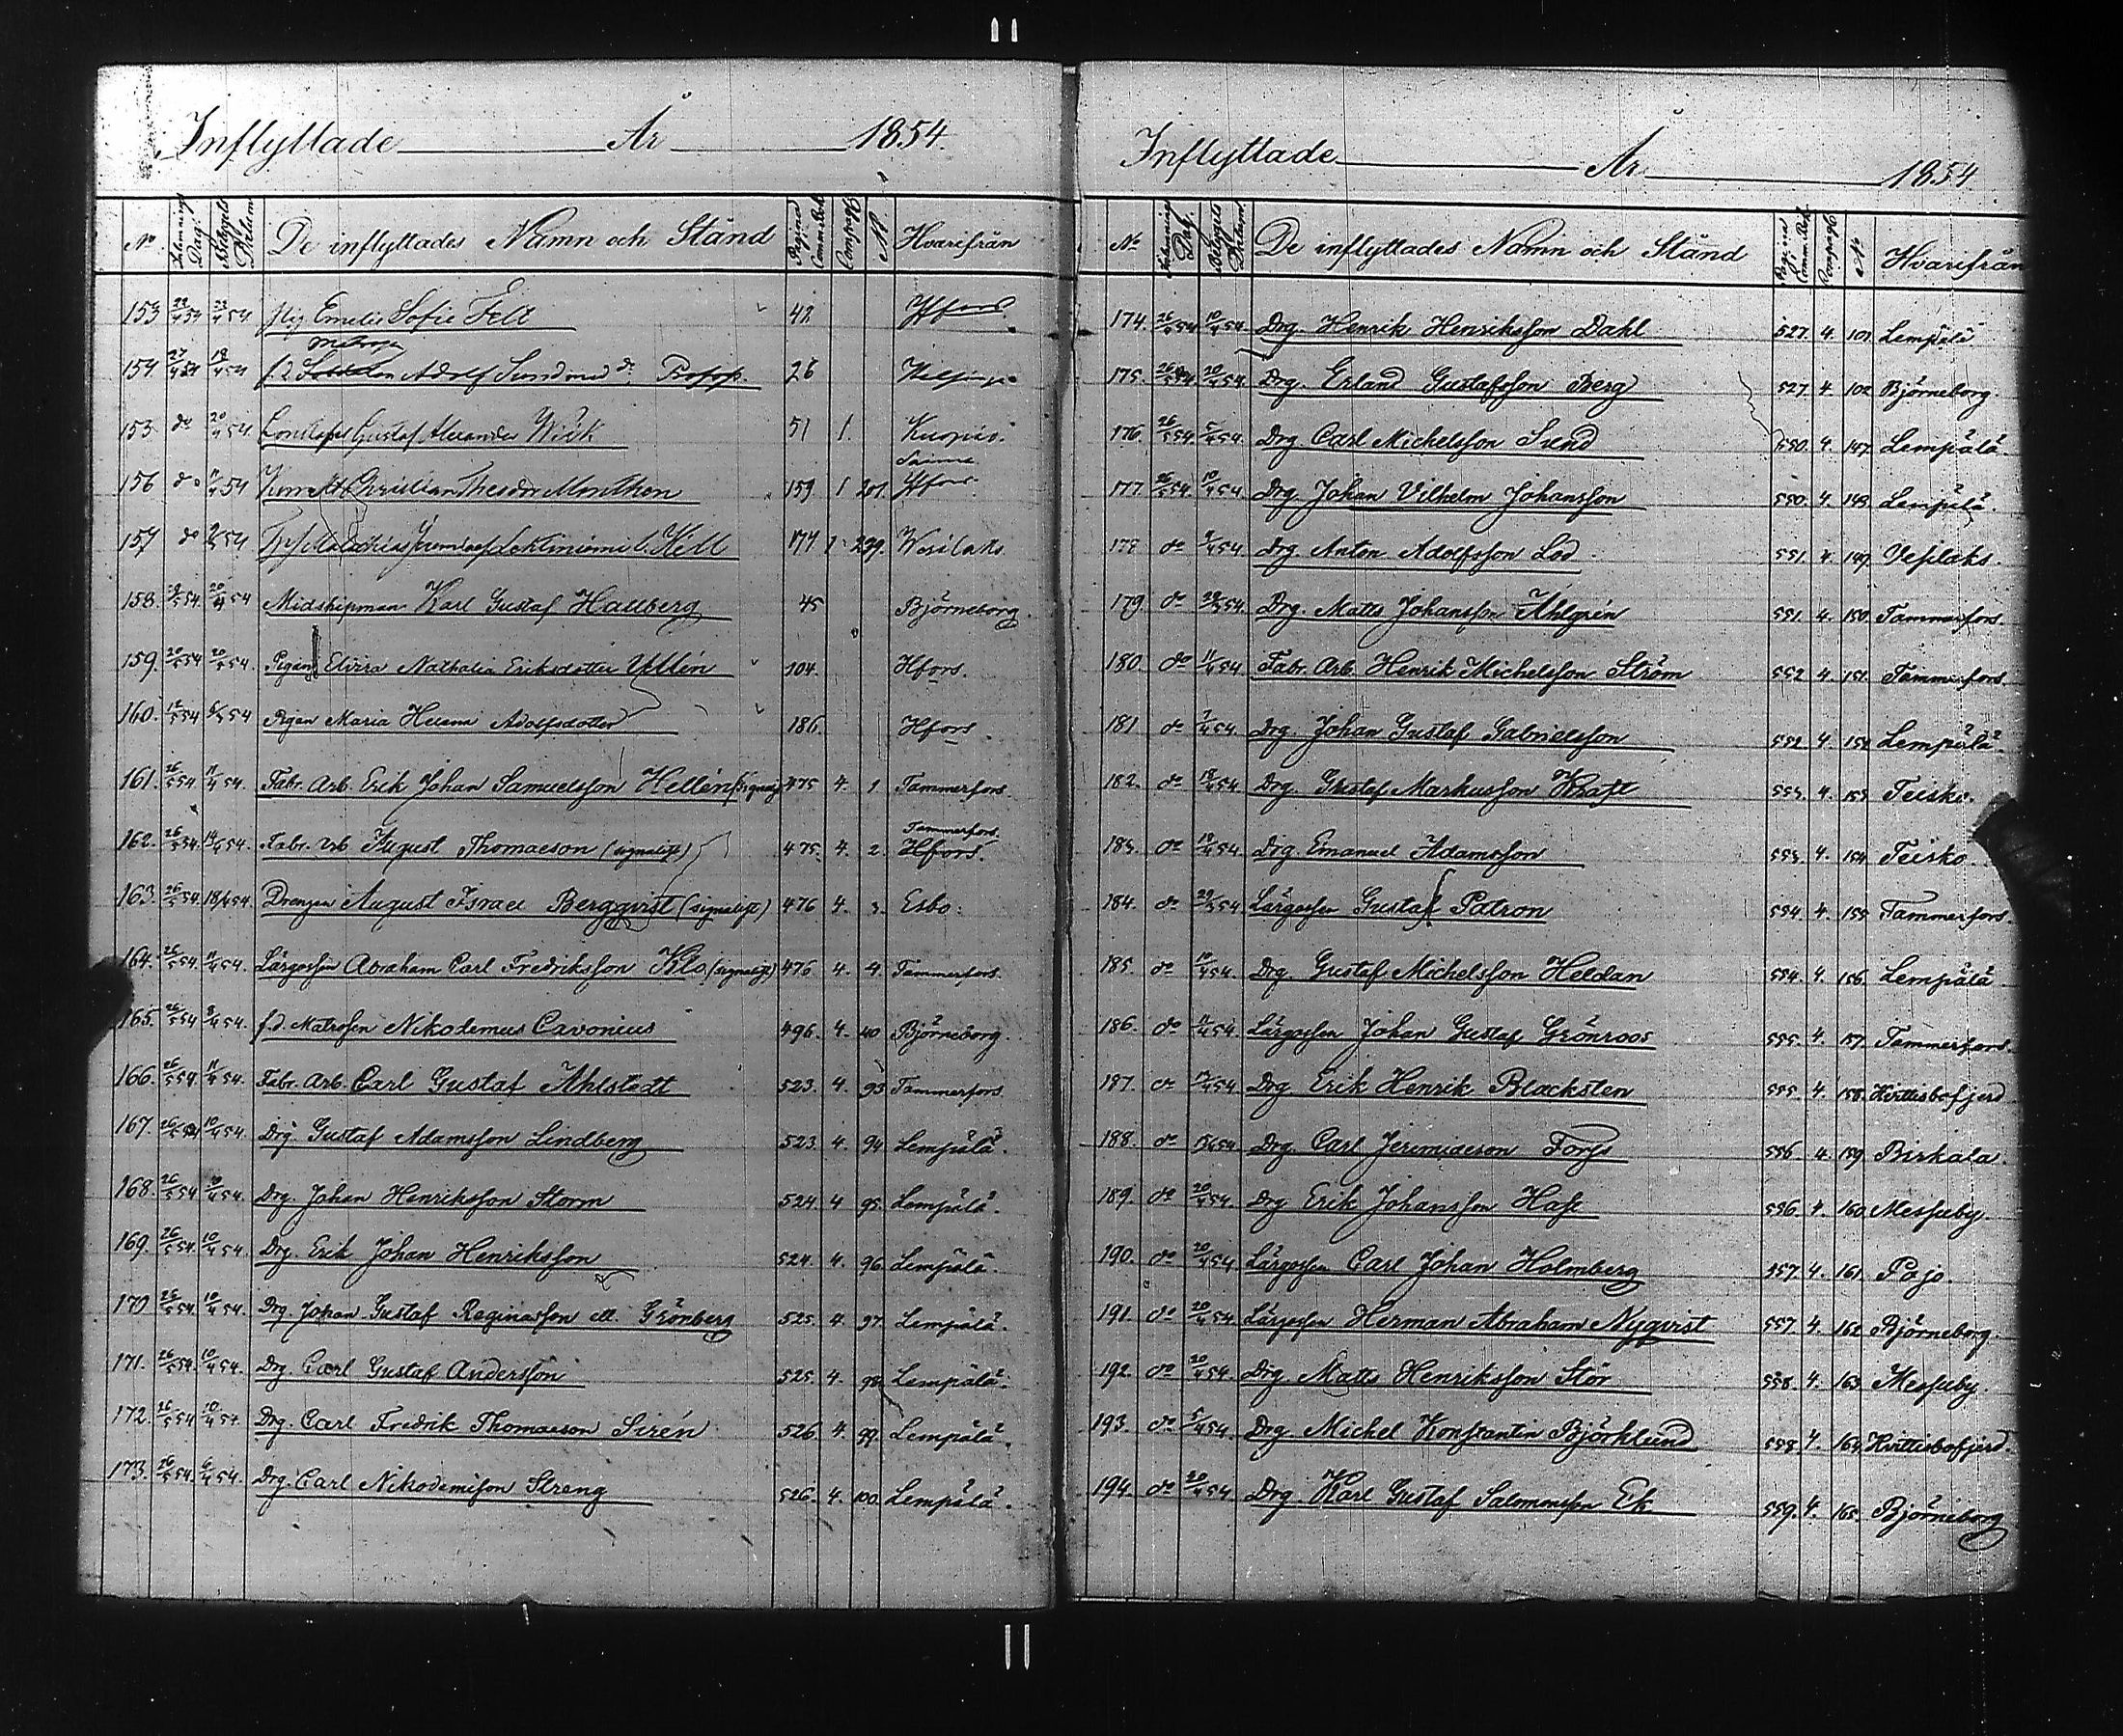 Inflyttade År 1854.
No Inlemnings Dag. Betygets Datum De inflyttades Namn och Stånd Pagina i Comm. Bok Compagni No. Hvarifrån
153 22/4 54 22/4 54 Emelie Sofie Felt 42 Hfors
Matrosen
154. 27/4 54 18/4 54 f.d. Adolf Sundman 26
155 do 20/4 54 Gustaf Alexander Wiik 51 1. Kuopio.
Saima
156 do 11/4 54 Christian Theodor Monthen 159 1 201. Hfors.
157 do 54 177 1 239. Wesilaks.
158. 54. 20/4 54 Midshipman Karl Gustaf Hallberg 45 Björneborg.
159. 20/5 54 20/5 54. Pigan Elvira Nathalia Eriksdotter Vellén 104. Hfors.
160. 12/5 54 6/5 54 Pigan Maria Helena Adolfsdotter 186. Hfors.
161. 26/5 54 11/4 54. Fabr. Arb. Erik Johan Samuelsson Hellén (signalist) 475 4. 1. Tammerfors
Tammerfors.
162. 26/5 54. 14/4 54. Fabr. Arb August Thomaeson (signalist) 475. 4. 2. Hfors.
163. 26/5 54. 18/4 54 Drengen August Israel Bergqvist (signalist) 476 4. 3. Esbo.
164. 26/5 54. 11/4 54. Lärgossen Abraham Carl Fredriksson Klo. (signalist) 476 4. 4. Tammerfors.
165. 26/5 54 8/4 54. f.d. Matrosen Nikodemus Cavonius 496. 4. 40 Björneborg.
166. 26/5 54. 11/4 54. Fabr. Arb. Carl Gustaf Ahlstedt 523. 4. 93 Tammerfors.
167. 26/5 54 10/4 54. Drg. Gustaf Adamsson Lindberg 523. 4. 94 Lempälä.
168. 26/5 54 10/4 54. Drg. Johan Henriksson Storm 524. 4 95. Lempälä.
169. 26/5 54. 10/4 54. Drg. Erik Johan Henriksson 524. 4. 96 Lempälä.
170 26/5 54. 10/4 54. Drg. Johan Gustaf Reginasson ell. Grönberg 525. 4. 97. Lempälä.
171. 26/5 54. 10/4 54. Drg. Carl Gustaf Andersson 525. 4. 98. Lempälä.
172. 26/5 54 10/4 54. Drg. Carl Fredrik Thomaeson Sirén 526. 4. 99. Lempälä.
173. 26/5 54. 6/4 54. Drg. Carl Nikodemisson Streng 526. 4. 100. Lempälä.
Inflyttade År 1854
No Inlemnings Dag. Betygets Datum De inflyttades Namn och Stånd Pagina i Comm. Bok. Compagni No Hvarifrån
174. 26/5 54 10/4 54. Drg. Henrik Henriksson Dahl 527. 4. 101. Lempälä
175. 26/5 54. 20/4 54. Drg. Erland Gustafsson Berg 527. 4. 102 Björneborg
176. 26/5 54 5/4 54. Drg. Carl Michelsson Sund 550. 4. 147. Lempälä.
177. 26/5 54. 10/4 54. Drg. Johan Vilhelm Johansson 550. 4. 148. Lempälä.
178 do 54. Drg. Anton Adolfsson Lod 551. 4. 149. Vesilaks.
179. do 54. Drg. Matts Johansson Ahlgrén 551. 4. 150. Tammerfors.
180. do 11/4 54. Fabr. Arb. Henrik Michelsson Ström 552 4. 151. Tammerfors.
181 do 7/4 54. Drg. Johan Gustaf Gabrielsson 552 4. 152. Lempälä.
182. do 18/4 54. Drg. Gustaf Markusson Kraft 553. 4. 153 Teisko.
183. do 18/4 54. Drg. Emanuel Adamsson 553. 4. 154 Teisko.
184. do 54 Lärgossen Gustaf Patron 554. 4. 155 Tammerfors.
185. do 10/4 54. Drg. Gustaf Michelsson Heldan 554. 4. 156. Lempälä.
186. do 11/4 54. Lärgossen Johan Gustaf Grönroos 555. 4. 157. Tammerfors.
187. do 54. Drg. Erik Henrik Blacksten 555. 4. 158. Hvittisbofjerd
188. do 54 Drg. Carl Jeremiaeson Forss 556 4. 159. Birkala.
189. do 20/4 54. Drg Erik Johansson Hast 556. 4. 160. Messuby.
190. do 20/4 54 Lärgossen Carl Johan Holmberg 557. 4. 161. Pojo.
191. do 20/4 54. Lärgossen Herman Abraham Nyqvist 557. 4. 162 Björneborg.
192. do 20/4 54. Drg. Matts Henriksson Stör 558. 4. 163 Messuby.
193. do 5/4 54. Drg. Michel Konstantin Björklund 558. 4. 164. Hvittisbofjerd.
194. do 20/4 54 Drg. Karl Gustaf Salomonsson Ek 559. 4. 165. Björneborg